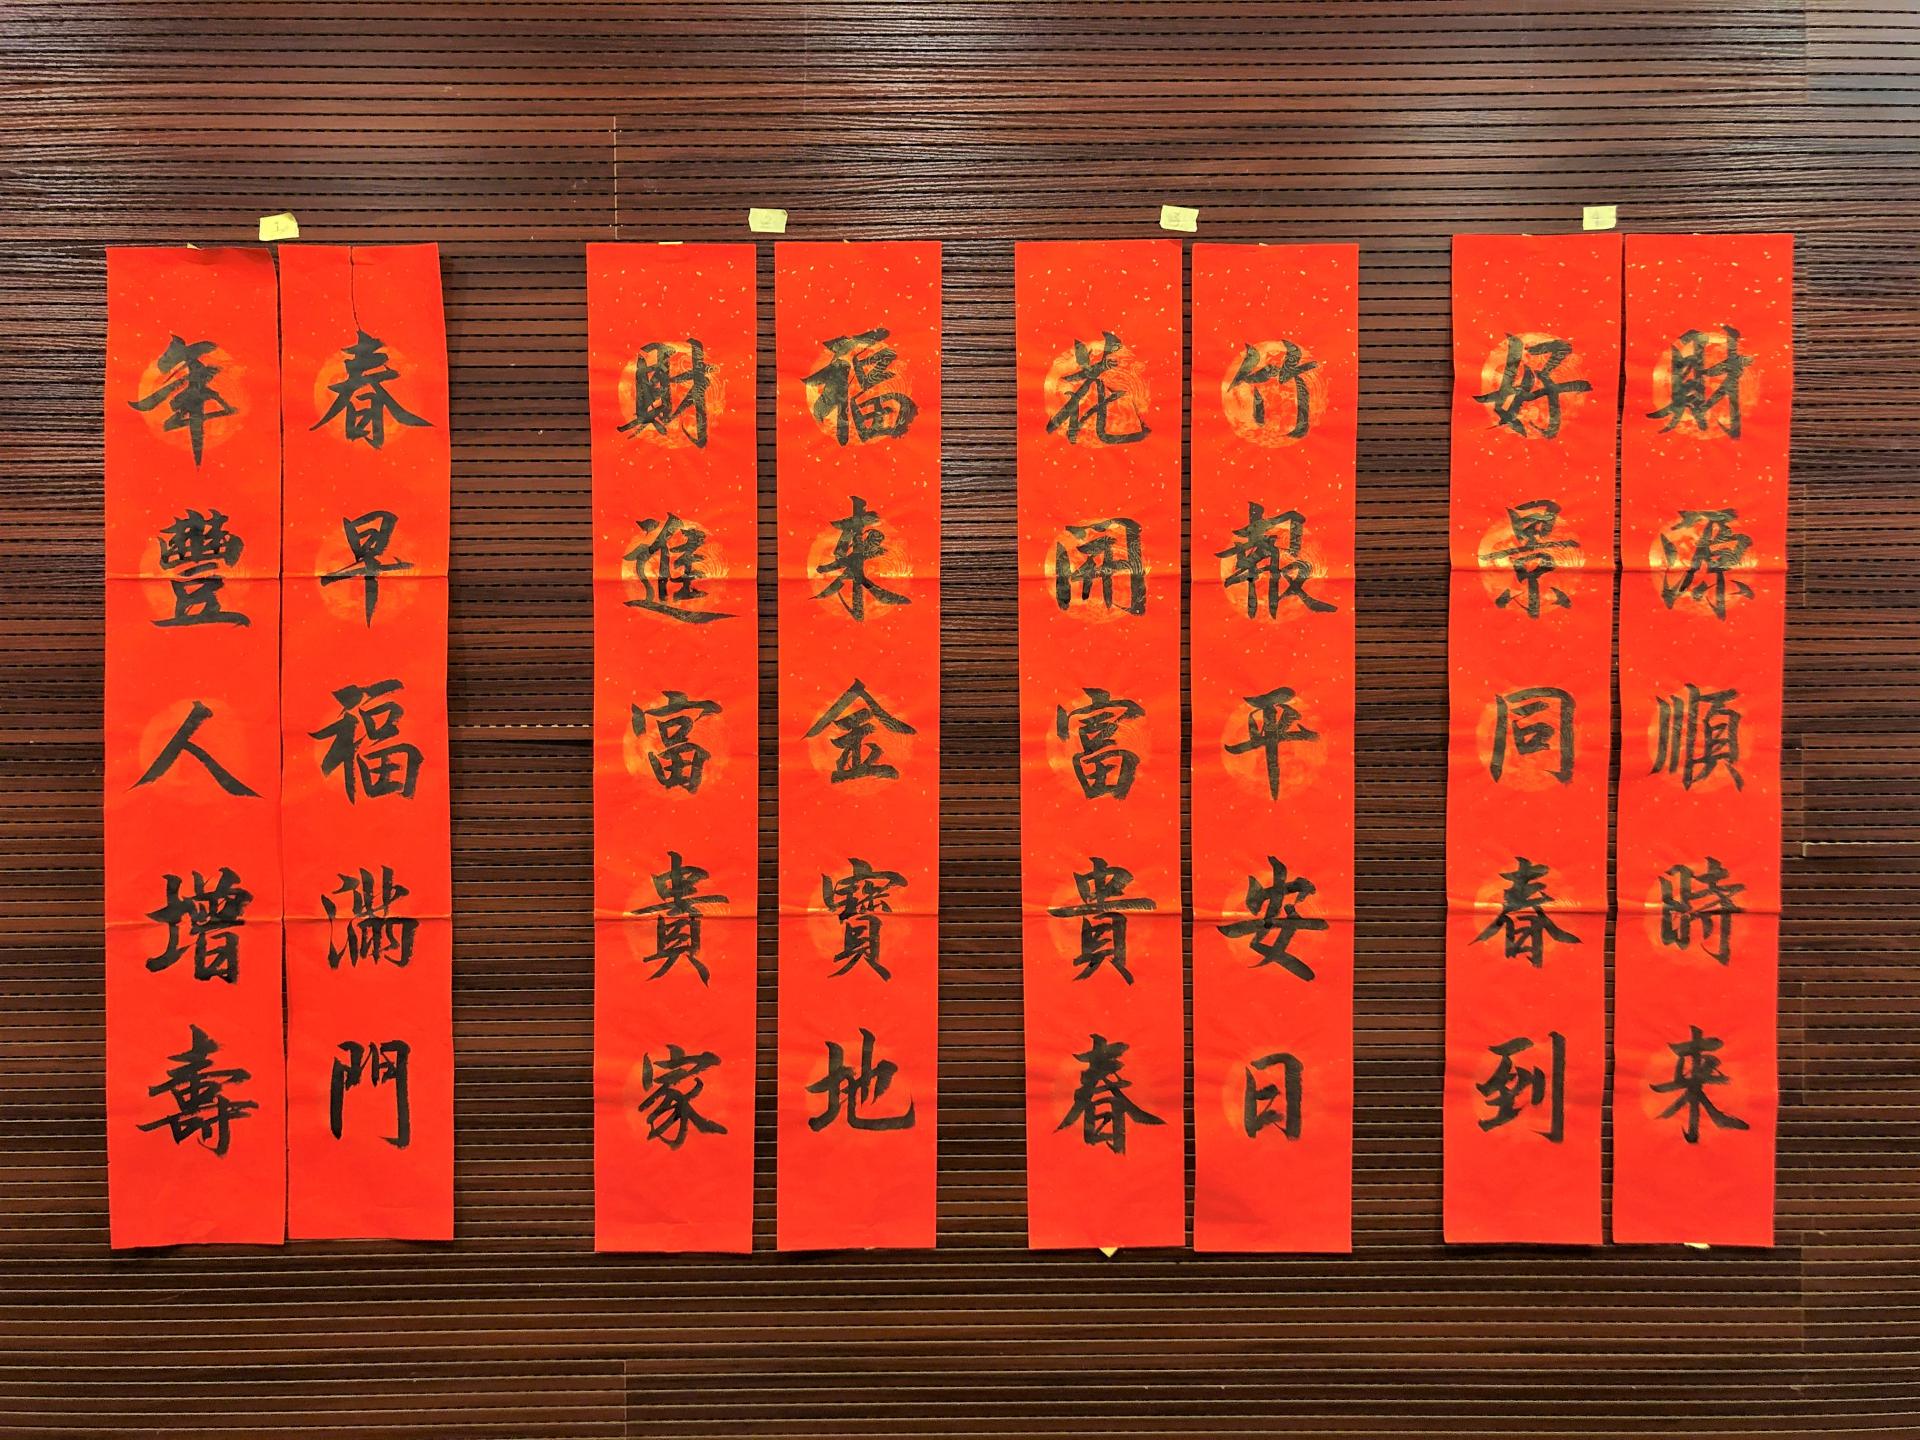 1
春早福滿門
年豐人增壽
2
福来金寶地
財進富貴家
3
竹報平安日
花開富貴春
4
財源順時来
好景同春到